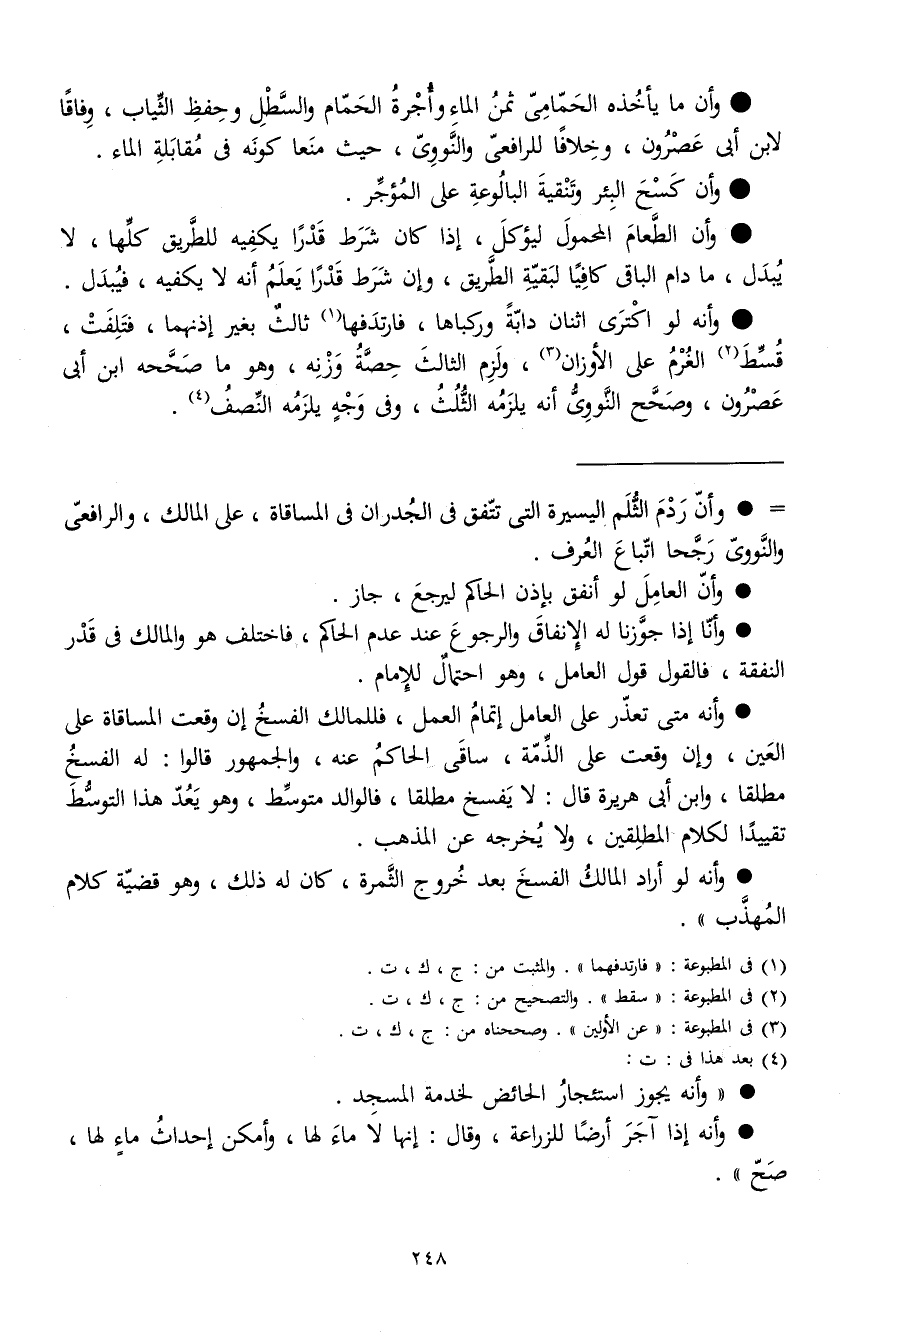 ● وأن ما يأخُذه الحَمّامِىّ ثمنُ الماءِ وأُجْرةُ الحَمّام والسَّطْلِ وحِفظِ الثِّياب ، وِفاقًا
لابن أبى عَصْرُون ، وخِلافًا للرافعىّ والنَّووِىّ ، حيث منَعا كونَه فى مُقابَلةِ الماء .
● وأن كَسْحَ البِئر وتَنْقيةَ البالُوعةِ على المُؤجِّر .
● وأن الطَّعامَ المحمولَ ليؤكلَ ، إذا كان شَرَط قَدْرًا يكفيه للطَّريق كلِّها ، لا
يُبدَل ، ما دام الباقى كافِيًا لبَقيّةِ الطَّريق ، وإن شَرَط قَدْرًا يَعلَمُ أنه لا يكفيه ، فيُبدَل .
● وأنه لو اكْترَى اثنان دابّةً وركباها ، فارتدَفها(١) ثالثٌ بغير إذنهما ، فتَلِفَتْ ،
قُسِّطَ(٢) الغُرْمُ على الأوزان(٣) ، ولَزِم الثالثَ حِصَّةُ وَزْنِه ، وهو ما صَحَّحه ابن أبى
عَصْرُون ، وصَحَّح النَّووِىُّ أنه يلزَمُه الثُّلُثُ ، وفى وَجْهٍ يلزَمُه النِّصفُ(٤) .
= ● وأنّ رَدْمَ الثُّلَم اليسيرة التى تتّفق فى الجُدران فى المساقاة ، على المالك ، والرافعىّ
والنَّووىّ رَجَّحا اتّباعَ العُرف .
● وأنّ العامِلَ لو أنفق بإذن الحاكم ليرجعَ ، جاز .
● وأنّا إذا جوَّزنا له الإنفاقَ والرجوعَ عند عدم الحاكم ، فاختلف هو والمالك فى قَدْر
النفقة ، فالقول قول العامل ، وهو احتمالٌ للإمام .
● وأنه متى تعذّر على العامل إتمامُ العمل ، فللمالك الفسخُ إن وقعت المساقاة على
العَين ، وإن وقعت على الذِّمّة ، ساقَى الحاكمُ عنه ، والجمهور قالوا : له الفسخُ
مطلقا ، وابن أبى هريرة قال : لا يَفسخ مطلقا ، فالوالد متوسِّط ، وهو يَعُدّ هذا التوسُّطَ
تقييدًا لكلام المطلِقين ، ولا يُخرجه عن المذهب .
● وأنه لو أراد المالكُ الفسخَ بعد خُروج الثَّمرة ، كان له ذلك ، وهو قضيّة كلام
المُهذَّب » .
(١) فى المطبوعة : « فارتدفهما » . والمثبت من : ج ، ك ، ت .
(٢) فى المطبوعة : « سقط » . والتصحيح من : ج ، ك ، ت .
(٣) فى المطبوعة : « عن الأولين » . وصححناه من : ج ، ك ، ت .
(٤) بعد هذا فى : ت :
● « وأنه يجوز استئجارُ الحائض لخدمة المسجد .
● وأنه إذا آجَرَ أرضًا للزراعة ، وقال : إنها لا ماءَ لها ، وأمكن إحداثُ ماءٍ لها ،
صَحّ » .
٢٤٨